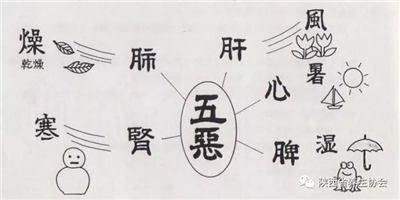 燥
乾燥
肺
肝
風
暑
心
五惡
寒
腎
脾
湿
陕西省养生协会